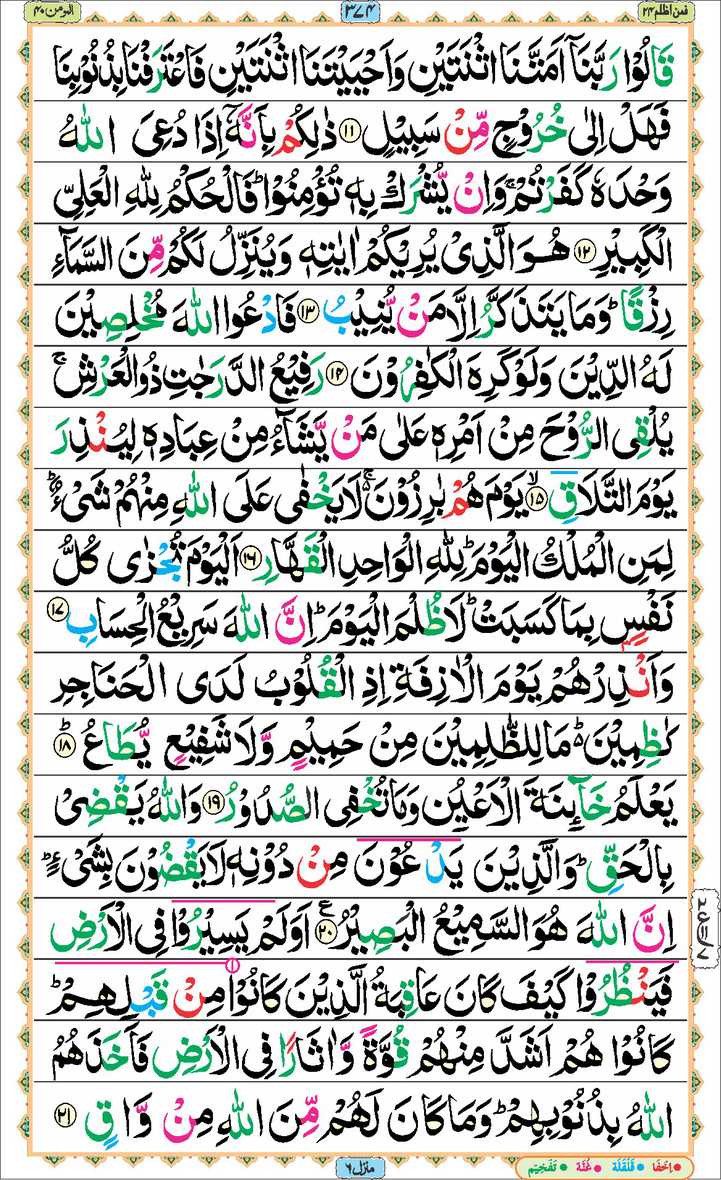 فمن اظلم ۲۴
۳۷۴
المؤمن ۴۰
قَالُوْا رَبَّنَاۤ اَمَتَّنَا اثْنَتَيْنِ وَاَحْيَيْتَنَا اثْنَتَيْنِ فَاعْتَرَفْنَا بِذُنُوْبِنَا
فَهَلْ اِلٰى خُرُوْجٍ مِّنْ سَبِيْلٍ ۝۱۱ ذٰلِكُمْ بِاَنَّهٗۤ اِذَا دُعِىَ اللّٰهُ
وَحْدَهٗ كَفَرْتُمْ ۚ وَاِنْ يُّشْرَكْ بِهٖ تُؤْمِنُوْا ؕ فَالْحُكْمُ لِلّٰهِ الْعَلِىِّ
الْكَبِيْرِ ۝۱۲ هُوَ الَّذِىْ يُرِيْكُمْ اٰيٰتِهٖ وَيُنَزِّلُ لَكُمْ مِّنَ السَّمَآءِ
رِزْقًا ؕ وَمَا يَتَذَكَّرُ اِلَّا مَنْ يُّنِيْبُ ۝۱۳ فَادْعُوا اللّٰهَ مُخْلِصِيْنَ
لَهُ الدِّيْنَ وَلَوْ كَرِهَ الْكٰفِرُوْنَ ۝۱۴ رَفِيْعُ الدَّرَجٰتِ ذُو الْعَرْشِ ۚ
يُلْقِى الرُّوْحَ مِنْ اَمْرِهٖ عَلٰى مَنْ يَّشَآءُ مِنْ عِبَادِهٖ لِيُنْذِرَ
يَوْمَ التَّلَاقِ ۝۱۵ ۙ يَوْمَ هُمْ بٰرِزُوْنَ ۚ۬ لَا يَخْفٰى عَلَى اللّٰهِ مِنْهُمْ شَىْءٌ ؕ
لِمَنِ الْمُلْكُ الْيَوْمَ ؕ لِلّٰهِ الْوَاحِدِ الْقَهَّارِ ۝۱۶ اَلْيَوْمَ تُجْزٰى كُلُّ
نَفْسٍۭ بِمَا كَسَبَتْ ؕ لَا ظُلْمَ الْيَوْمَ ؕ اِنَّ اللّٰهَ سَرِيْعُ الْحِسَابِ ۝۱۷
وَاَنْذِرْهُمْ يَوْمَ الْاٰزِفَةِ اِذِ الْقُلُوْبُ لَدَى الْحَنَاجِرِ
كٰظِمِيْنَ ؕ۬ مَا لِلظّٰلِمِيْنَ مِنْ حَمِيْمٍ وَّلَا شَفِيْعٍ يُّطَاعُ ؕ ۝۱۸
يَعْلَمُ خَآئِنَةَ الْاَعْيُنِ وَمَا تُخْفِى الصُّدُوْرُ ۝۱۹ وَاللّٰهُ يَقْضِىْ
بِالْحَقِّ ؕ وَالَّذِيْنَ يَدْعُوْنَ مِنْ دُوْنِهٖ لَا يَقْضُوْنَ بِشَىْءٍ ؕ
اِنَّ اللّٰهَ هُوَ السَّمِيْعُ الْبَصِيْرُ ۝۲۰ ع اَوَلَمْ يَسِيْرُوْا فِى الْاَرْضِ
فَيَنْظُرُوْا كَيْفَ كَانَ عَاقِبَةُ الَّذِيْنَ كَانُوْا مِنْ قَبْلِهِمْ ؕ
كَانُوْا هُمْ اَشَدَّ مِنْهُمْ قُوَّةً وَّاٰثَارًا فِى الْاَرْضِ فَاَخَذَهُمُ
اللّٰهُ بِذُنُوْبِهِمْ ؕ وَمَا كَانَ لَهُمْ مِّنَ اللّٰهِ مِنْ وَّاقٍ ۝۲۱
منزل ۶
اِخفَا قَلْقَلَة غُنَّة تَفْخِيْم